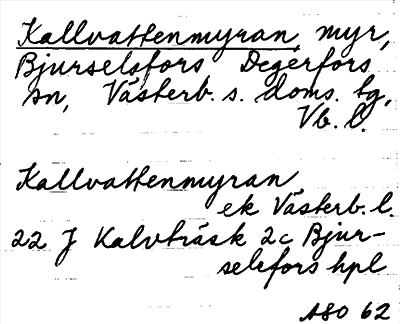 Kallvattenmyran, myr,
Bjurselsfors Degerfors
sn, Västerb. s. doms. tg,
Vb. l.
Kallvattenmyran
ek Västerb. l.
22 J Kalvträsk 2c Bjur-
selsfors hpl
ASO 62